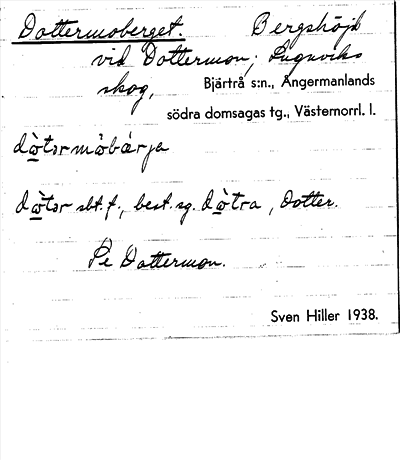 Dottermoberget. Bergshöjd
vid Dottermon, Lugnviks
skog, Bjärtrå s:n., Ångermanlands
södra domsagas tg., Västernorrl. l.
dò̱tərmòbǽrja
dò̱tər sbt. f., best. sg. dò̱tra, dotter.
Se Dottermon.
Sven Hiller 1938.